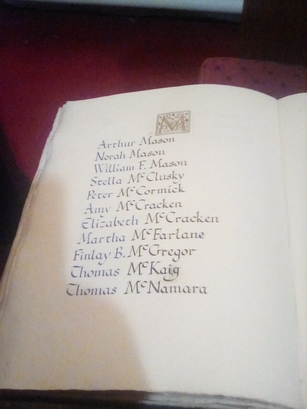 M
Arthur Mason
Norah Mason
William F. Mason
Stella McClusky
Peter McCormick
Amy McCracken
Elizabeth McCracken
Martha McFarlane
Finlay B. McGregor
Thomas McKaig
Thomas McNamara